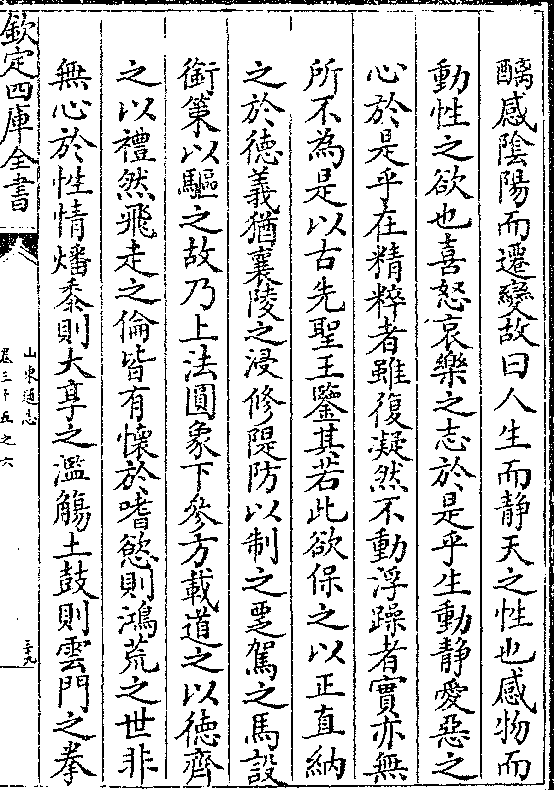 醨感隂陽而遷變故曰人生而静天之性也感物而
動性之欲也喜怒哀樂之志於是乎生動静愛惡之
心於是乎在精粹者雖復凝然不動浮躁者實亦無
所不為是以古先聖王鑒其若此欲保之以正直納
之於徳義猶襄陵之浸修隄防以制之覂駕之馬設
銜策以驅之故乃上法圓象下參方載道之以徳齊
之以禮然飛走之倫皆有懷於嗜慾則鴻荒之世非
無心於性情燔黍則大享之濫觴土鼓則雲門之拳
欽定四庫全書
山東通志
卷三十五之六
三十九